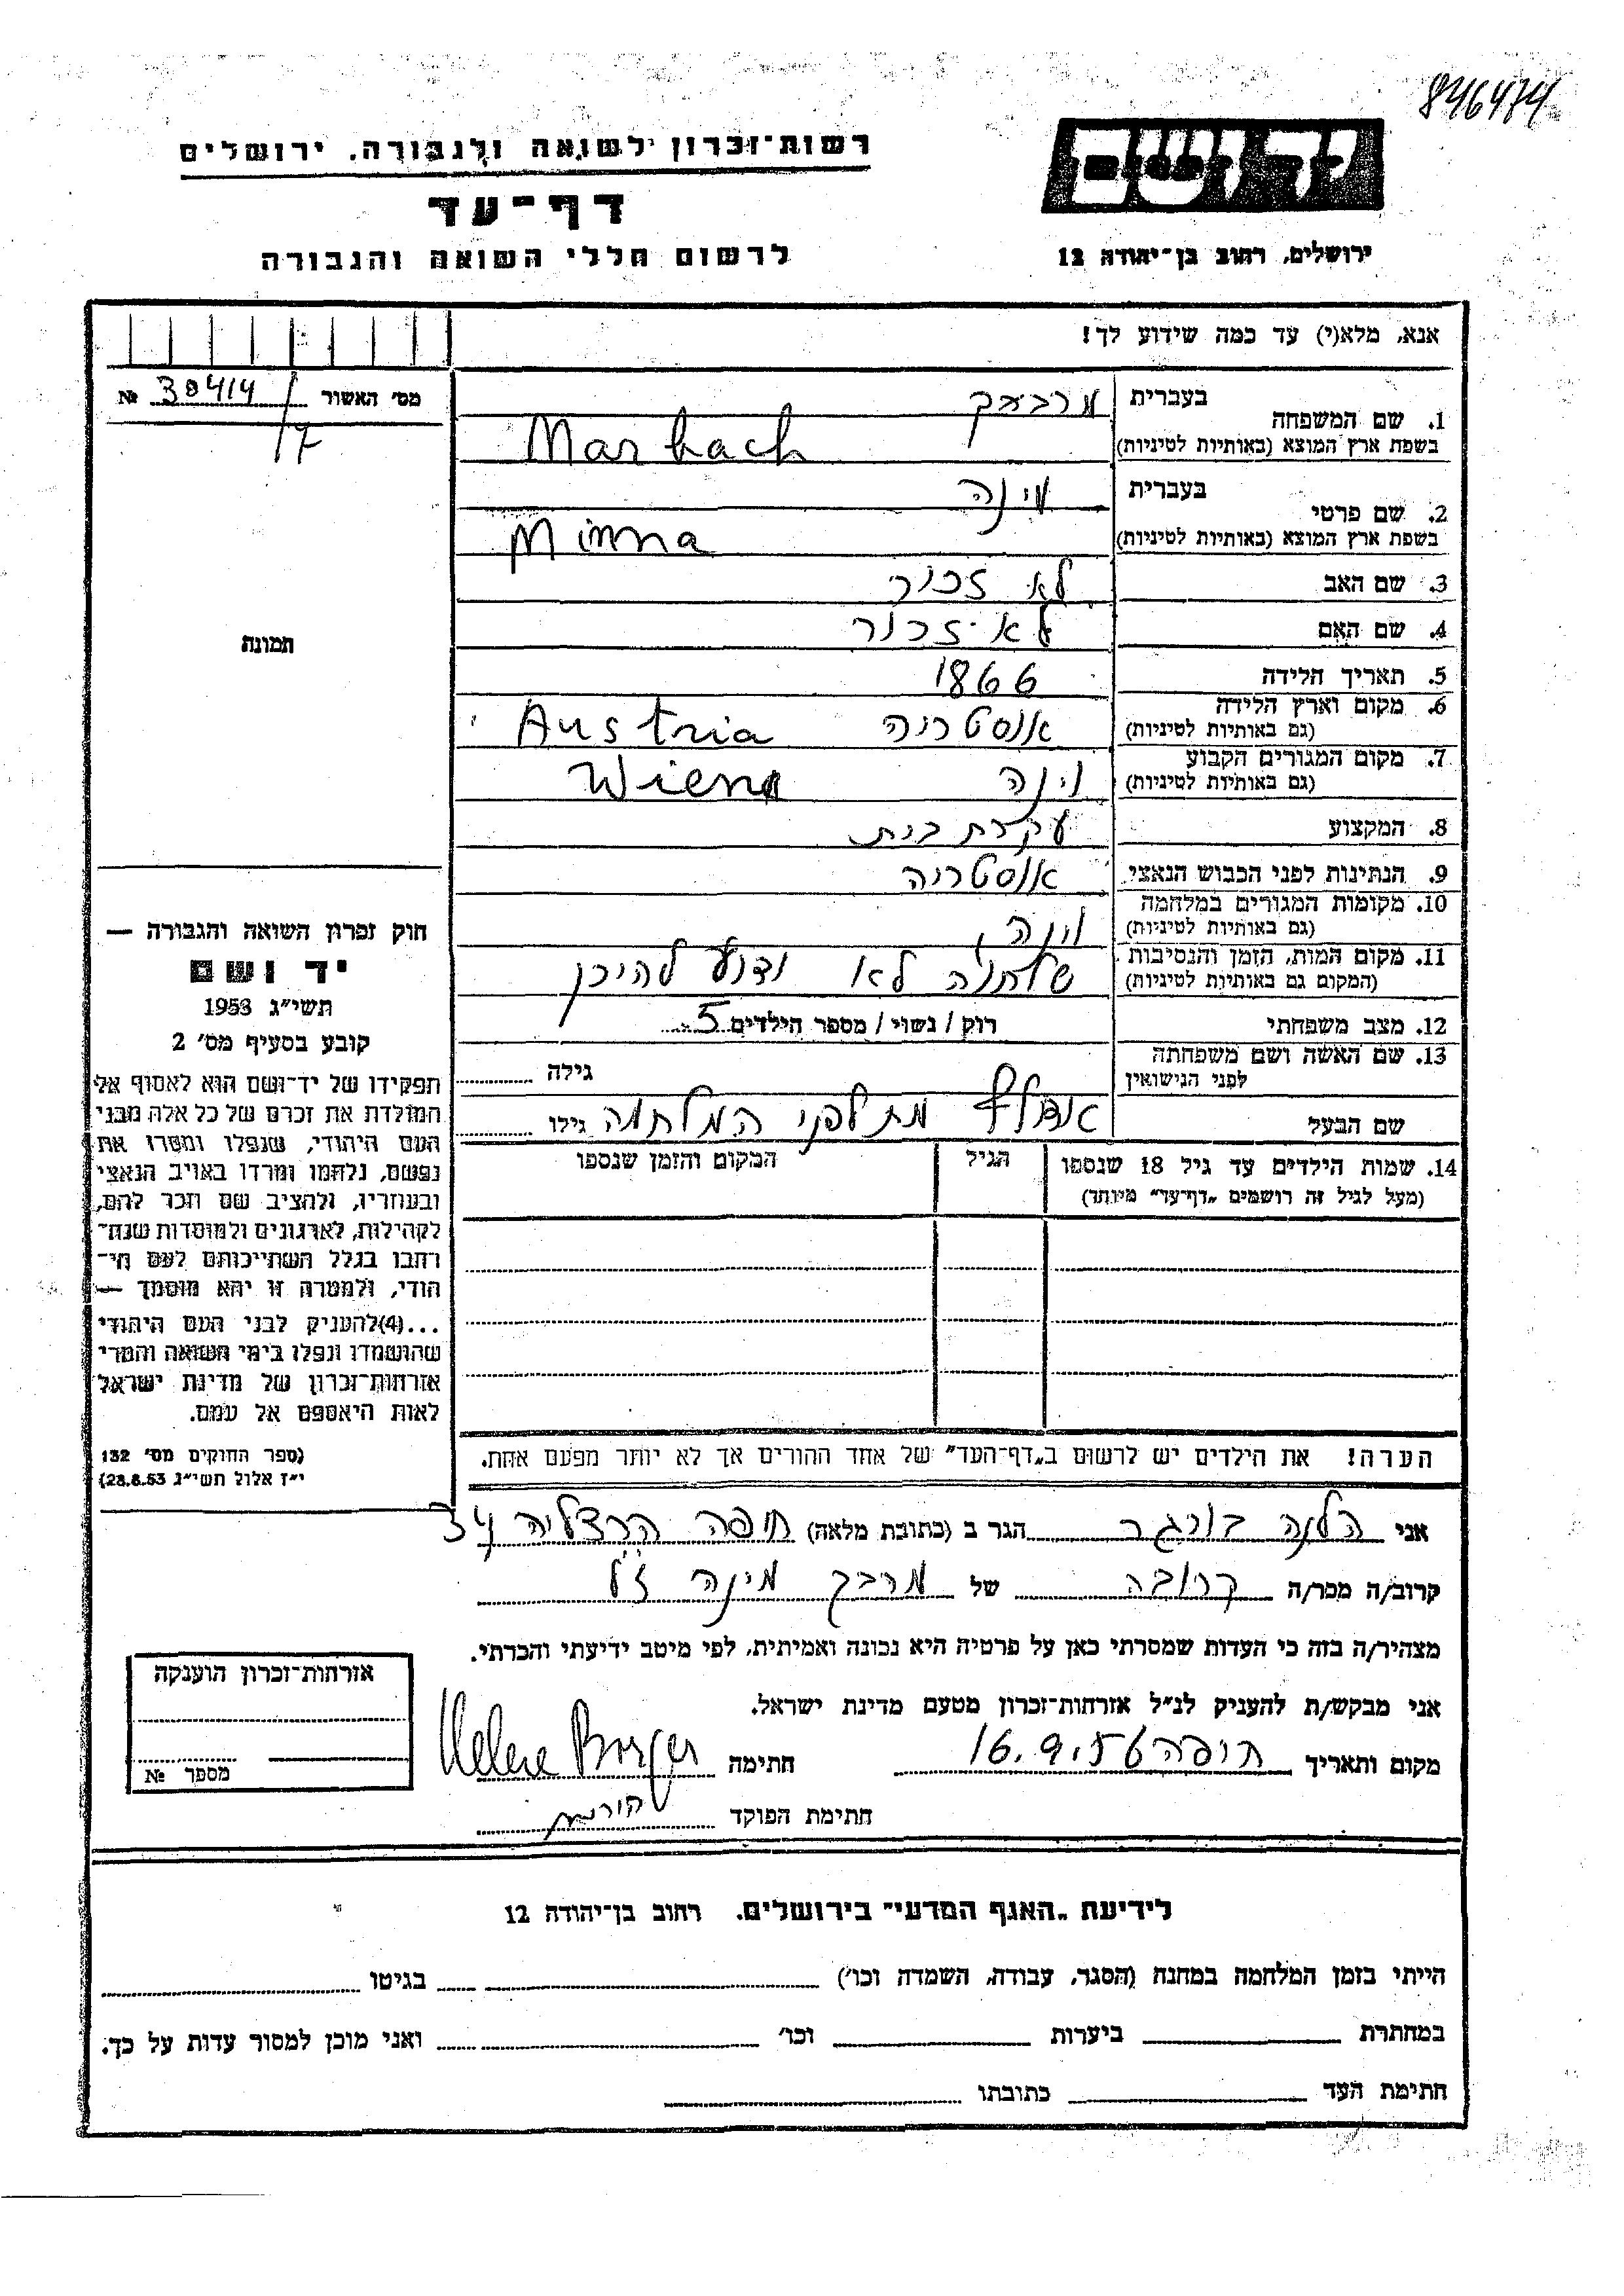 846474
יד ושם
ירושלים, רחוב בן־יהודה 12
רשות־זכרון לשואה ולגבורה, ירושלים
דף־עד
לרשום חללי השואה והגבורה
אנא, מלא(י) עד כמה שידוע לך!
מס׳ האשור № 30414/
17
תמונה
1. שם המשפחה
בעברית מרבאך
בשפת ארץ המוצא (באותיות לטיניות) Marbach
2. שם פרטי
בעברית מינה
בשפת ארץ המוצא (באותיות לטיניות) Minna
3. שם האב לא זכור
4. שם האם לא זכור
5. תאריך הלידה 1866
6. מקום וארץ הלידה
(גם באותיות לטיניות) אוסטריה Austria
7. מקום המגורים הקבוע
(גם באותיות לטיניות) וינה Wien
8. המקצוע עקרת בית
9. הנתינות לפני הכבוש הנאצי אוסטריה
10. מקומות המגורים במלחמה
(גם באותיות לטיניות) וינה
11. מקום המות, הזמן והנסיבות
(המקום גם באותיות לטיניות) לא ידוע להיכן
12. מצב משפחתי רוק / נשוי / מספר הילדים 5
13. שם האשה ושם משפחתה
לפני הנישואין גילה
שם הבעל אדולף מת לפני המלחמה גילו
14. שמות הילדים עד גיל 18 שנספו הגיל המקום והזמן שנספו
(מעל לגיל זה רושמים „דף־עד" מיוחד)
הערה! את הילדים יש לרשום ב„דף־העד" של אחד ההורים אך לא יותר מפעם אחת.
חוק זכרון השואה והגבורה —
יד ושם
תשי״ג 1953
קובע בסעיף מס׳ 2
תפקידו של יד־ושם הוא לאסוף אל
המולדת את זכרם של כל אלה מבני
העם היהודי, שנפלו ומסרו את
נפשם, נלחמו ומרדו באויב הנאצי
ובעוזריו, ולהציב שם וזכר להם,
לקהילות, לארגונים ולמוסדות שנח־
רבו בגלל השתייכותם לעם הי־
הודי, ולמטרה זו יהא מוסמך —
...(4) להעניק לבני העם היהודי
שהושמדו ונפלו בימי השואה והמרי
אזרחות־זכרון של מדינת ישראל
לאות היאספם אל עמם.
(ספר החוקים מס׳ 132
י״ז אלול תשי״ג 28.8.53)
אני הלנה בורגר הגר ב (כתובת מלאה) חיפה הרצליה 34
קרוב/ה מכר/ה קרובה של מרבך מינה ז״ל
מצהיר/ה בזה כי העדות שמסרתי כאן על פרטיה היא נכונה ואמיתית, לפי מיטב ידיעתי והכרתי.
אני מבקש/ת להעניק לנ״ל אזרחות־זכרון מטעם מדינת ישראל.
מקום ותאריך חיפה 16.9.56 חתימה Helene Borger
חתימת הפוקד
אזרחות־זכרון הוענקה
מספר №
לידיעת „האגף המדעי" בירושלים, רחוב בן־יהודה 12
הייתי בזמן המלחמה במחנה (הסגר, עבודה, השמדה וכו׳) בגיטו
במחתרת ביערות וכו׳ ואני מוכן למסור עדות על כך.
חתימת העד כתובתו